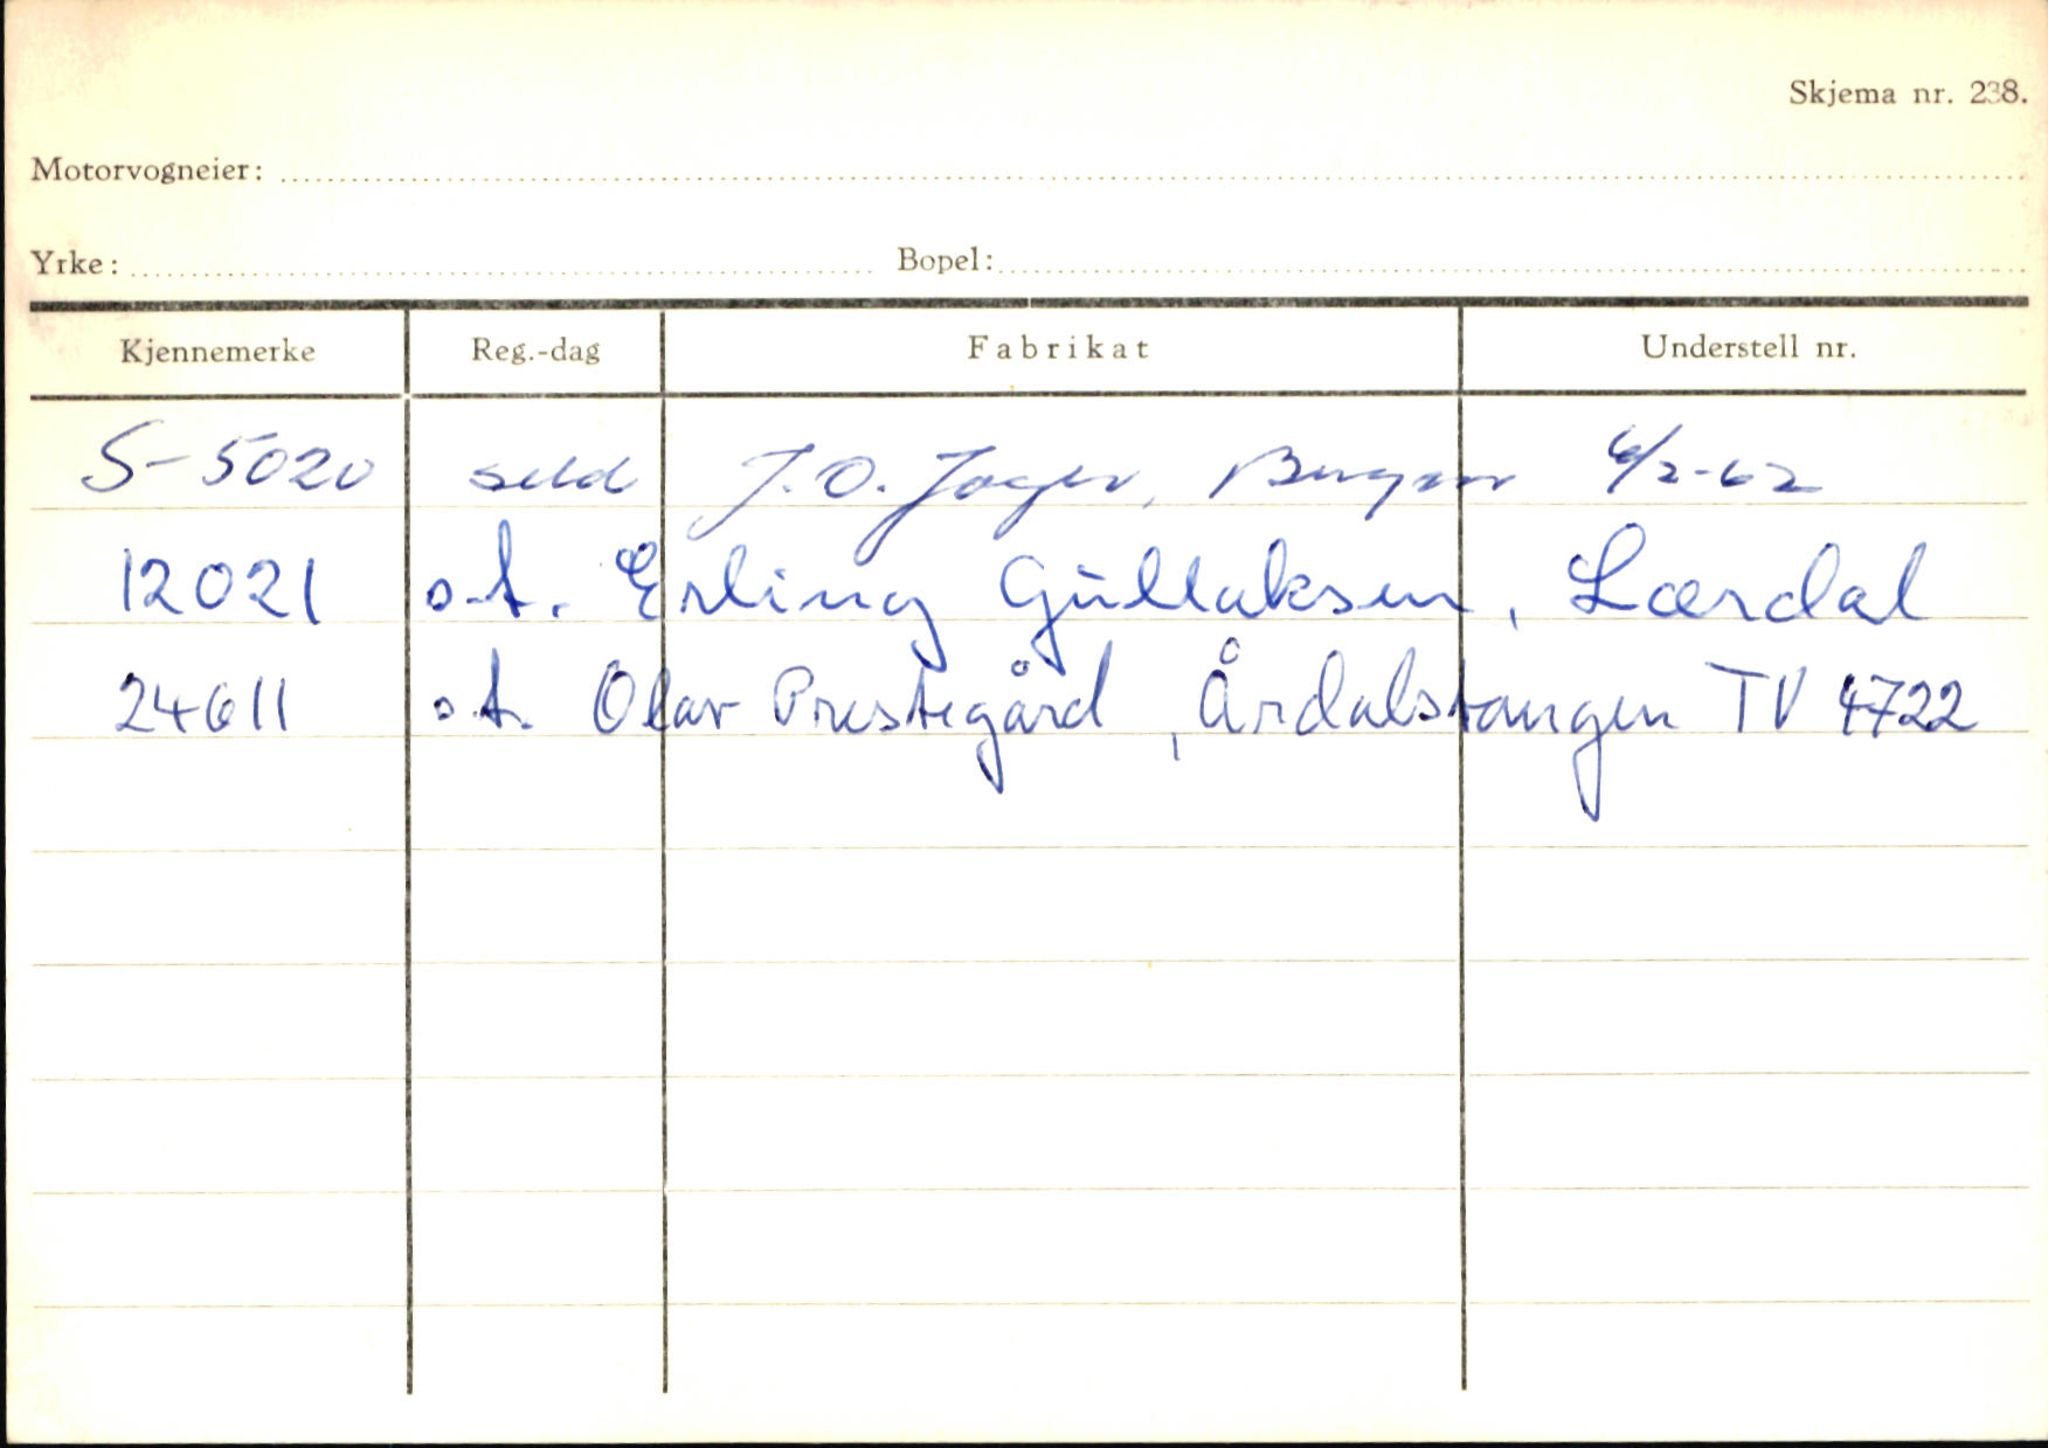 Skjema nr. 238.
Motorvogneier:
Yrke: Bopel:
Kjennemerke Reg.-dag Fabrikat Understell nr.
S-5020 seld J.O. Jager, Bergen 6/2-62
12021 o.t. Erling Gullaksen, Lærdal
24611 o.t. Olav Prestegård, Årdalstangen TV 4722